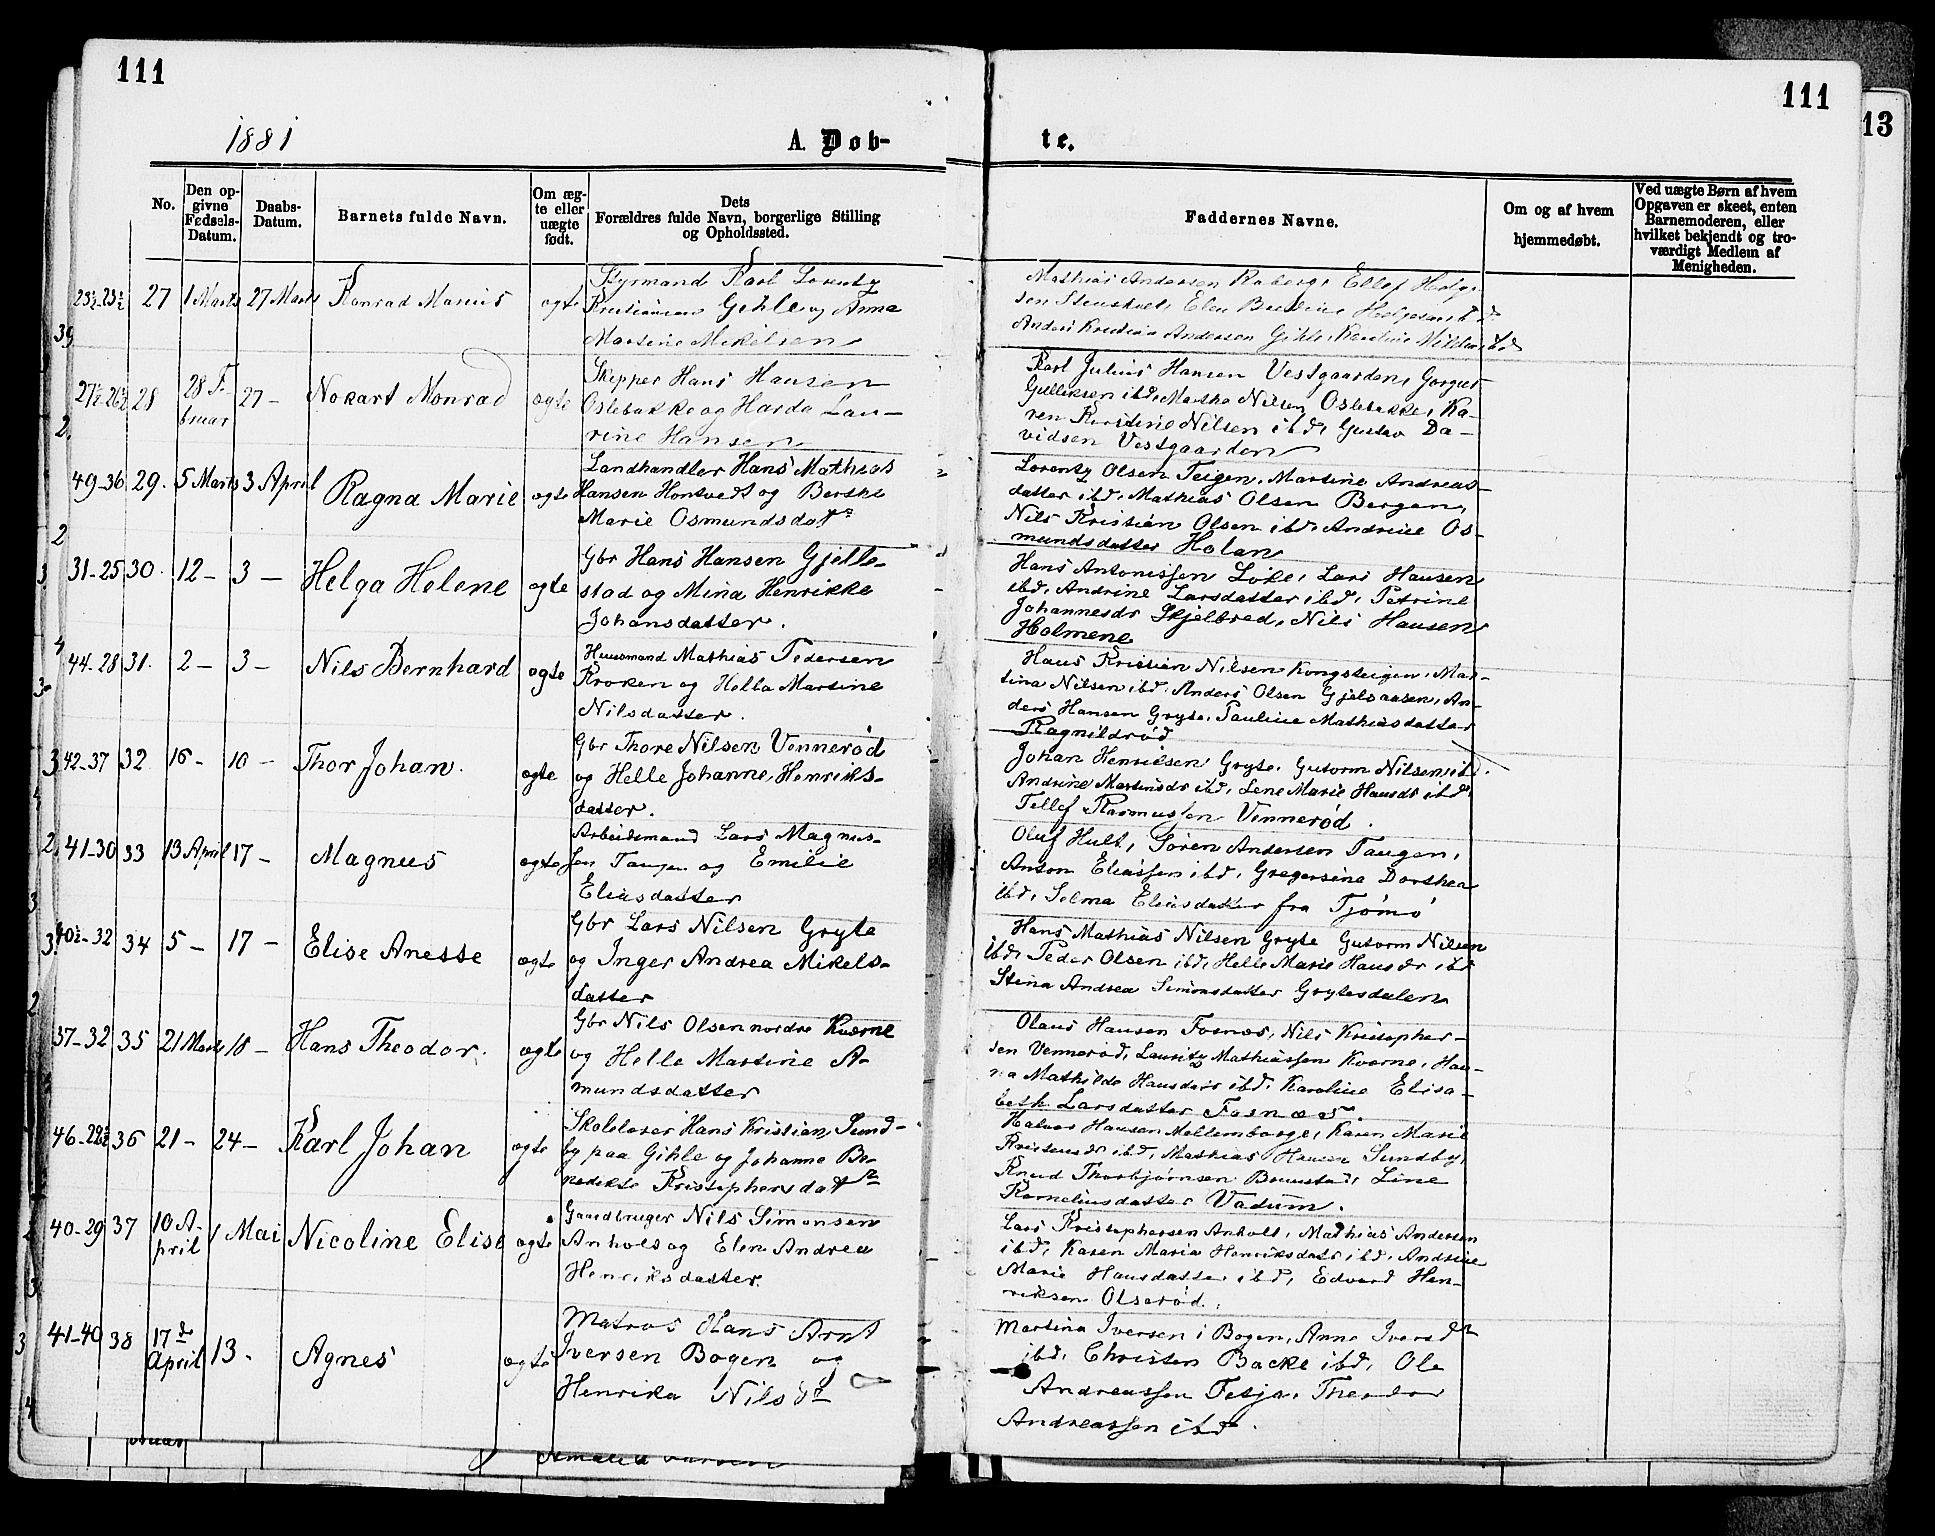 111
111
13
1881
A. Døb-
te.
No.
Den op-
givne
Fødsels-
Datum.
Daabs-
Datum.
Barnets fulde Navn.
Om æg-
te eller
uægte
født.
Dets
Forældres fulde Navn, borgerlige Stilling
og Opholdssted.
Faddernes Navne.
Om og af hvem
hjemmedøbt.
Ved uægte Børn af hvem
Opgaven er skeet, enten
Barnemoderen, eller
hvilket bekjendt og tro-
værdigt Medlem af
Menigheden.
27 1 Marts 27 Marts Konrad Marius ægte
Styrmand Karl Lorentz
Kristiansen Gihle og Anna
Martine Mikelsen
Mathias Andersen Raberg, Ellef Helge-
sen Stenskvet, Elen Bertine Helgesen ibd.
Anders Kristian Andersen Gihle, Karoline Nilsen ibd
28 28 Fe-
bruar 27 – Nokart Monrad ægte
Skipper Hans Hansen
Oslebakke og Harda Lau-
rine Hansen
Karl Julius Hansen Vestgaarden, Gorgus
Gulliksen ibd, Martha Nilsen Oslebakke, Ka-
ren Kristine Nilsen ibd, Gustav Da-
vidsen Vestgaarden
49-36 29. 5 Marts 3 April Ragna Marie ægte
Landhandler Hans Mathias
Hansen Hontvedt og Berthe
Marie Osmundsdatr
Lorentz Olsen Teigen, Martine Andreas-
datter ibd, Mathias Olsen Bergan,
Nils Kristian Olsen ibd, Andrine Os-
mundsdatter Holan
31-25 30. 12 – 3 – Helga Helene ægte
Gbr Hans Hansen Gjelle-
stad og Mina Henrikke
Johansdatter.
Hans Antonissen Løke, Lars Hansen
ibd, Andrine Larsdatter ibd, Petrine
Johannesdr Skjelbred, Nils Hansen
Holmene
44-28 31. 2 – 3 – Nils Bernhard ægte
Huusmand Mathias Pedersen
Kroken og Helba Martine
Nilsdatter.
Hans Kristian Nilsen Kongsteigen, Mar-
tina Nilsen ibd, Anders Olsen Gjelsaasen, An-
ders Hansen Gryte, Pauline Mathiasdatter
Ragnildrød
42-37 32 16 – 10 – Thor Johan. ægte
Gbr Thore Nilsen Vennerød
og Helle Johanne Henriks-
datter.
Johan Henriksen Gryte, Gutorm Nilsen ibd.
Andrine Martinsdr ibd, Lene Marie Hansdr ibd
Tellef Rasmussen Vennerød.
41-30 33 13 April 17 – Magnus ægte
Arbeidsmand Lars Magnus-
sen Tangen og Emilie
Eliasdatter
Oluf Hult, Søren Andersen Tangen,
Anton Eliassen ibd, Gregersine Dorthea
ibd, Selma Eliasdatter fra Tjømø
40½-32 34 5 – 17 – Elise Anesse ægte
Gbr Lars Nilsen Gryte
og Inger Andrea Mikels-
datter
Hans Mathias Nilsen Gryte Gutorm Nilsen
ibd, Peder Olsen ibd, Helle Marie Hansdr ibd
Stina Andrea Simonsdatter Grytesdalen
37-32 35 21 Marts 18 – Hans Theodor. ægte
Gbr Nils Olsen nordre Kværne
og Helle Martine A-
mundsdatter
Olaus Hansen Fosnæs, Nils Kristopher-
sen Vennerød, Lauritz Mathiassen Kværne, Han-
na Mathilde Hansdatr ibd, Karoline Elisa-
beth Larsdatter Fosnæs.
46-29½ 36 21 – 24 – Karl Johan ægte
Skolelærer Hans Kristian Sund-
by paa Gihle og Johanne Be-
nedikte Kristophersdatr
Halvor Hansen Mellemborge, Karen Marie
Kristensdr ibd, Mathias Hansen Sundby,
Knud Thorbjørnsen Bruustad, Line
Korneliusdatter Vadum.
40-29 37 10 A-
pril 1 Mai Nicoline Elise ægte
Gaardbruger Nils Simonsen
Anholt og Elen Andrea
Henriksdatter.
Lars Kristophersen Anholt, Mathias Andersen
ibd, Karen Maria Henriksdatr ibd, Andrine
Marie Hansdatter ibd, Edvard Hen-
riksen Olserød.
41-40 38 17de
April 13. Agnes ægte
Matros Hans Arnt
Iversen Bogen og
Henrika Nilsdt
Martina Iversen i Bogen, Anne Iversdt
ibd, Christen Backe ibd, Ole
Andreassen Tesja, Theodor
Andreassen ibd.